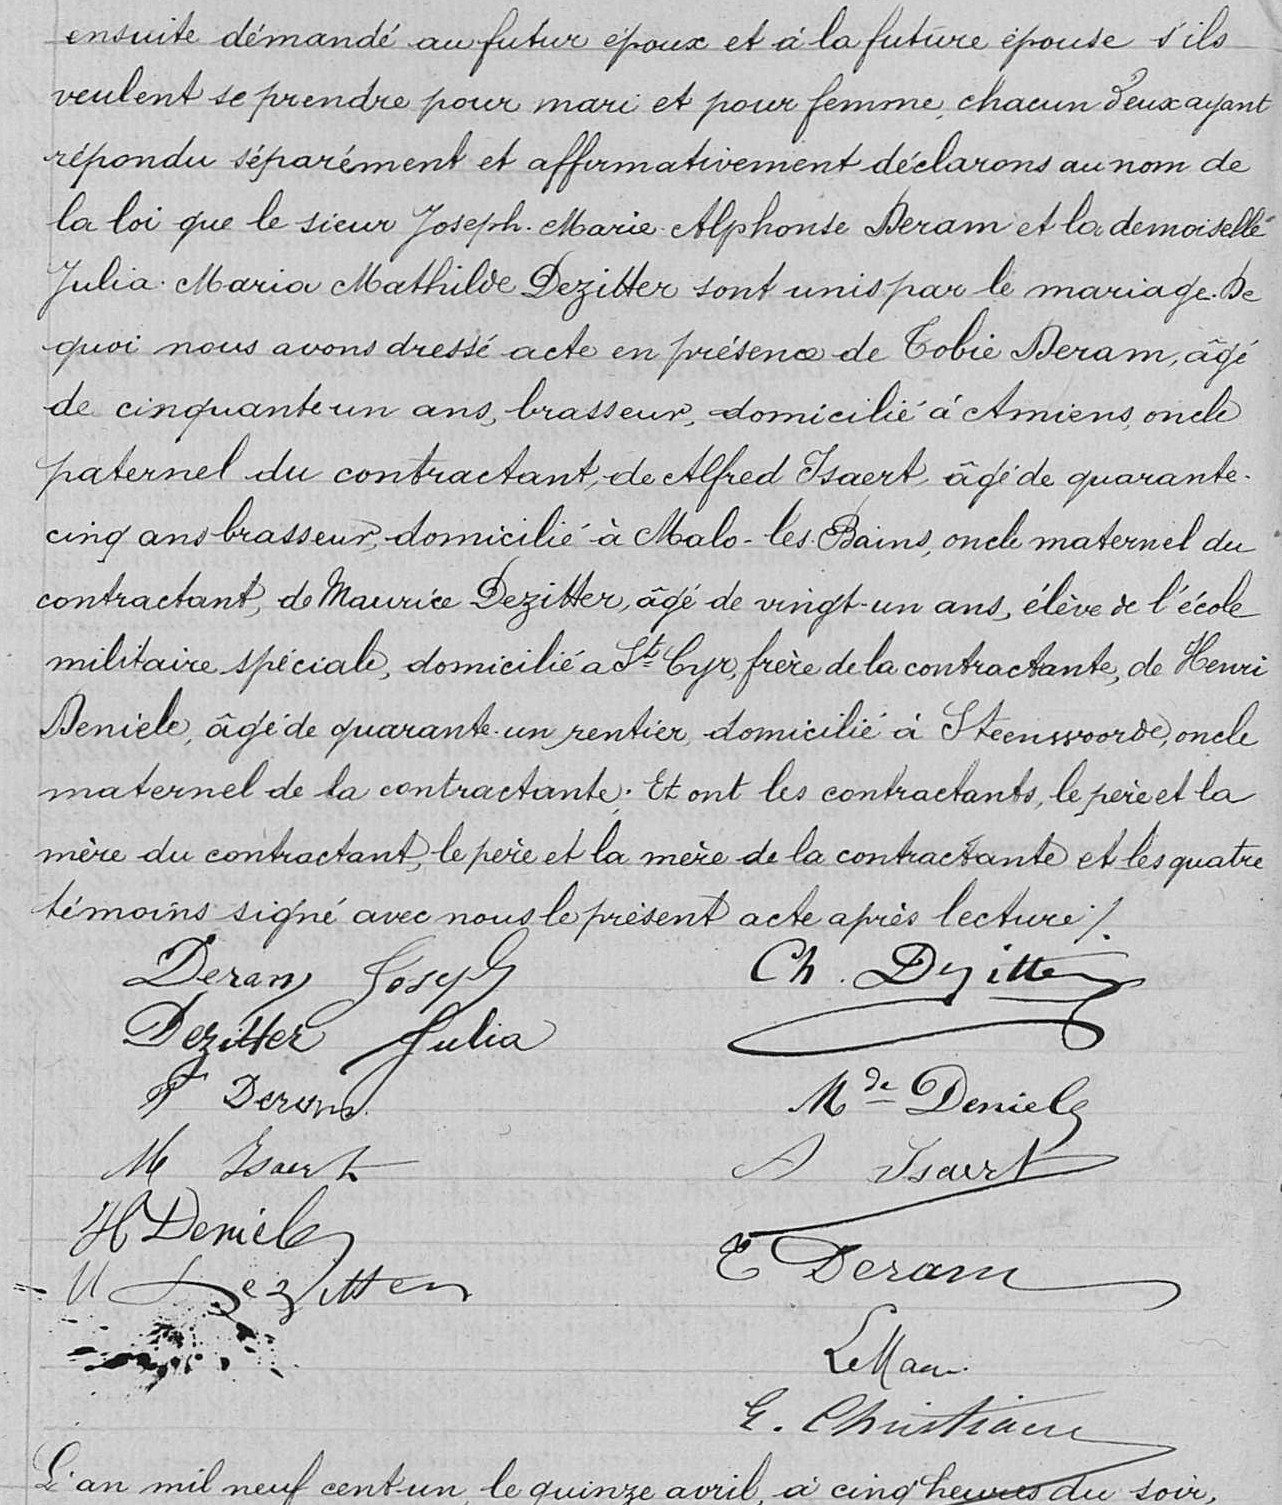 ensuite démandé au futur époux et à la future épouse s'ils
veulent se prendre pour mari et pour femme, chacun d'eux ayant
répondu séparément et affirmativement déclarons au nom de
la loi que le sieur Joseph-Marie-Alphonse Deram et la demoiselle
Julia-Maria Mathilde Dezitter sont unis par le mariage. De
quoi nous avons dressé acte en présence de Tobie Deram, âgé
de cinquante un ans, brasseur, domicilié à Amiens, oncle
paternel du contractant, de Alfred Isaert, âgé de quarante-
cinq ans brasseur, domicilié à Malo-les-Bains, oncle maternel du
contractant, de Maurice Dezitter, âgé de vingt-un ans, élève de l'école
militaire spéciale, domicilié a St Cyr, frère de la contractante, de Henri
Deniele, âgé de quarante-un rentier, domicilié à Steenwoorde, oncle
maternel de la contractante. Et ont les contractants, le père et la
mère du contractant, le père et la mère de la contractante et les quatre
témoins signé avec nous le présent acte après lecture ./.
Deram Joseph Ch. Dezitter
Dezitter Julia
T Deram Mde Deniele
M Isaert A Isaert
H Deniele T Deram
M Dezitter
E. Christiaen
L'an mil neuf cent-un, le quinze avril, à cinq heures du soir,